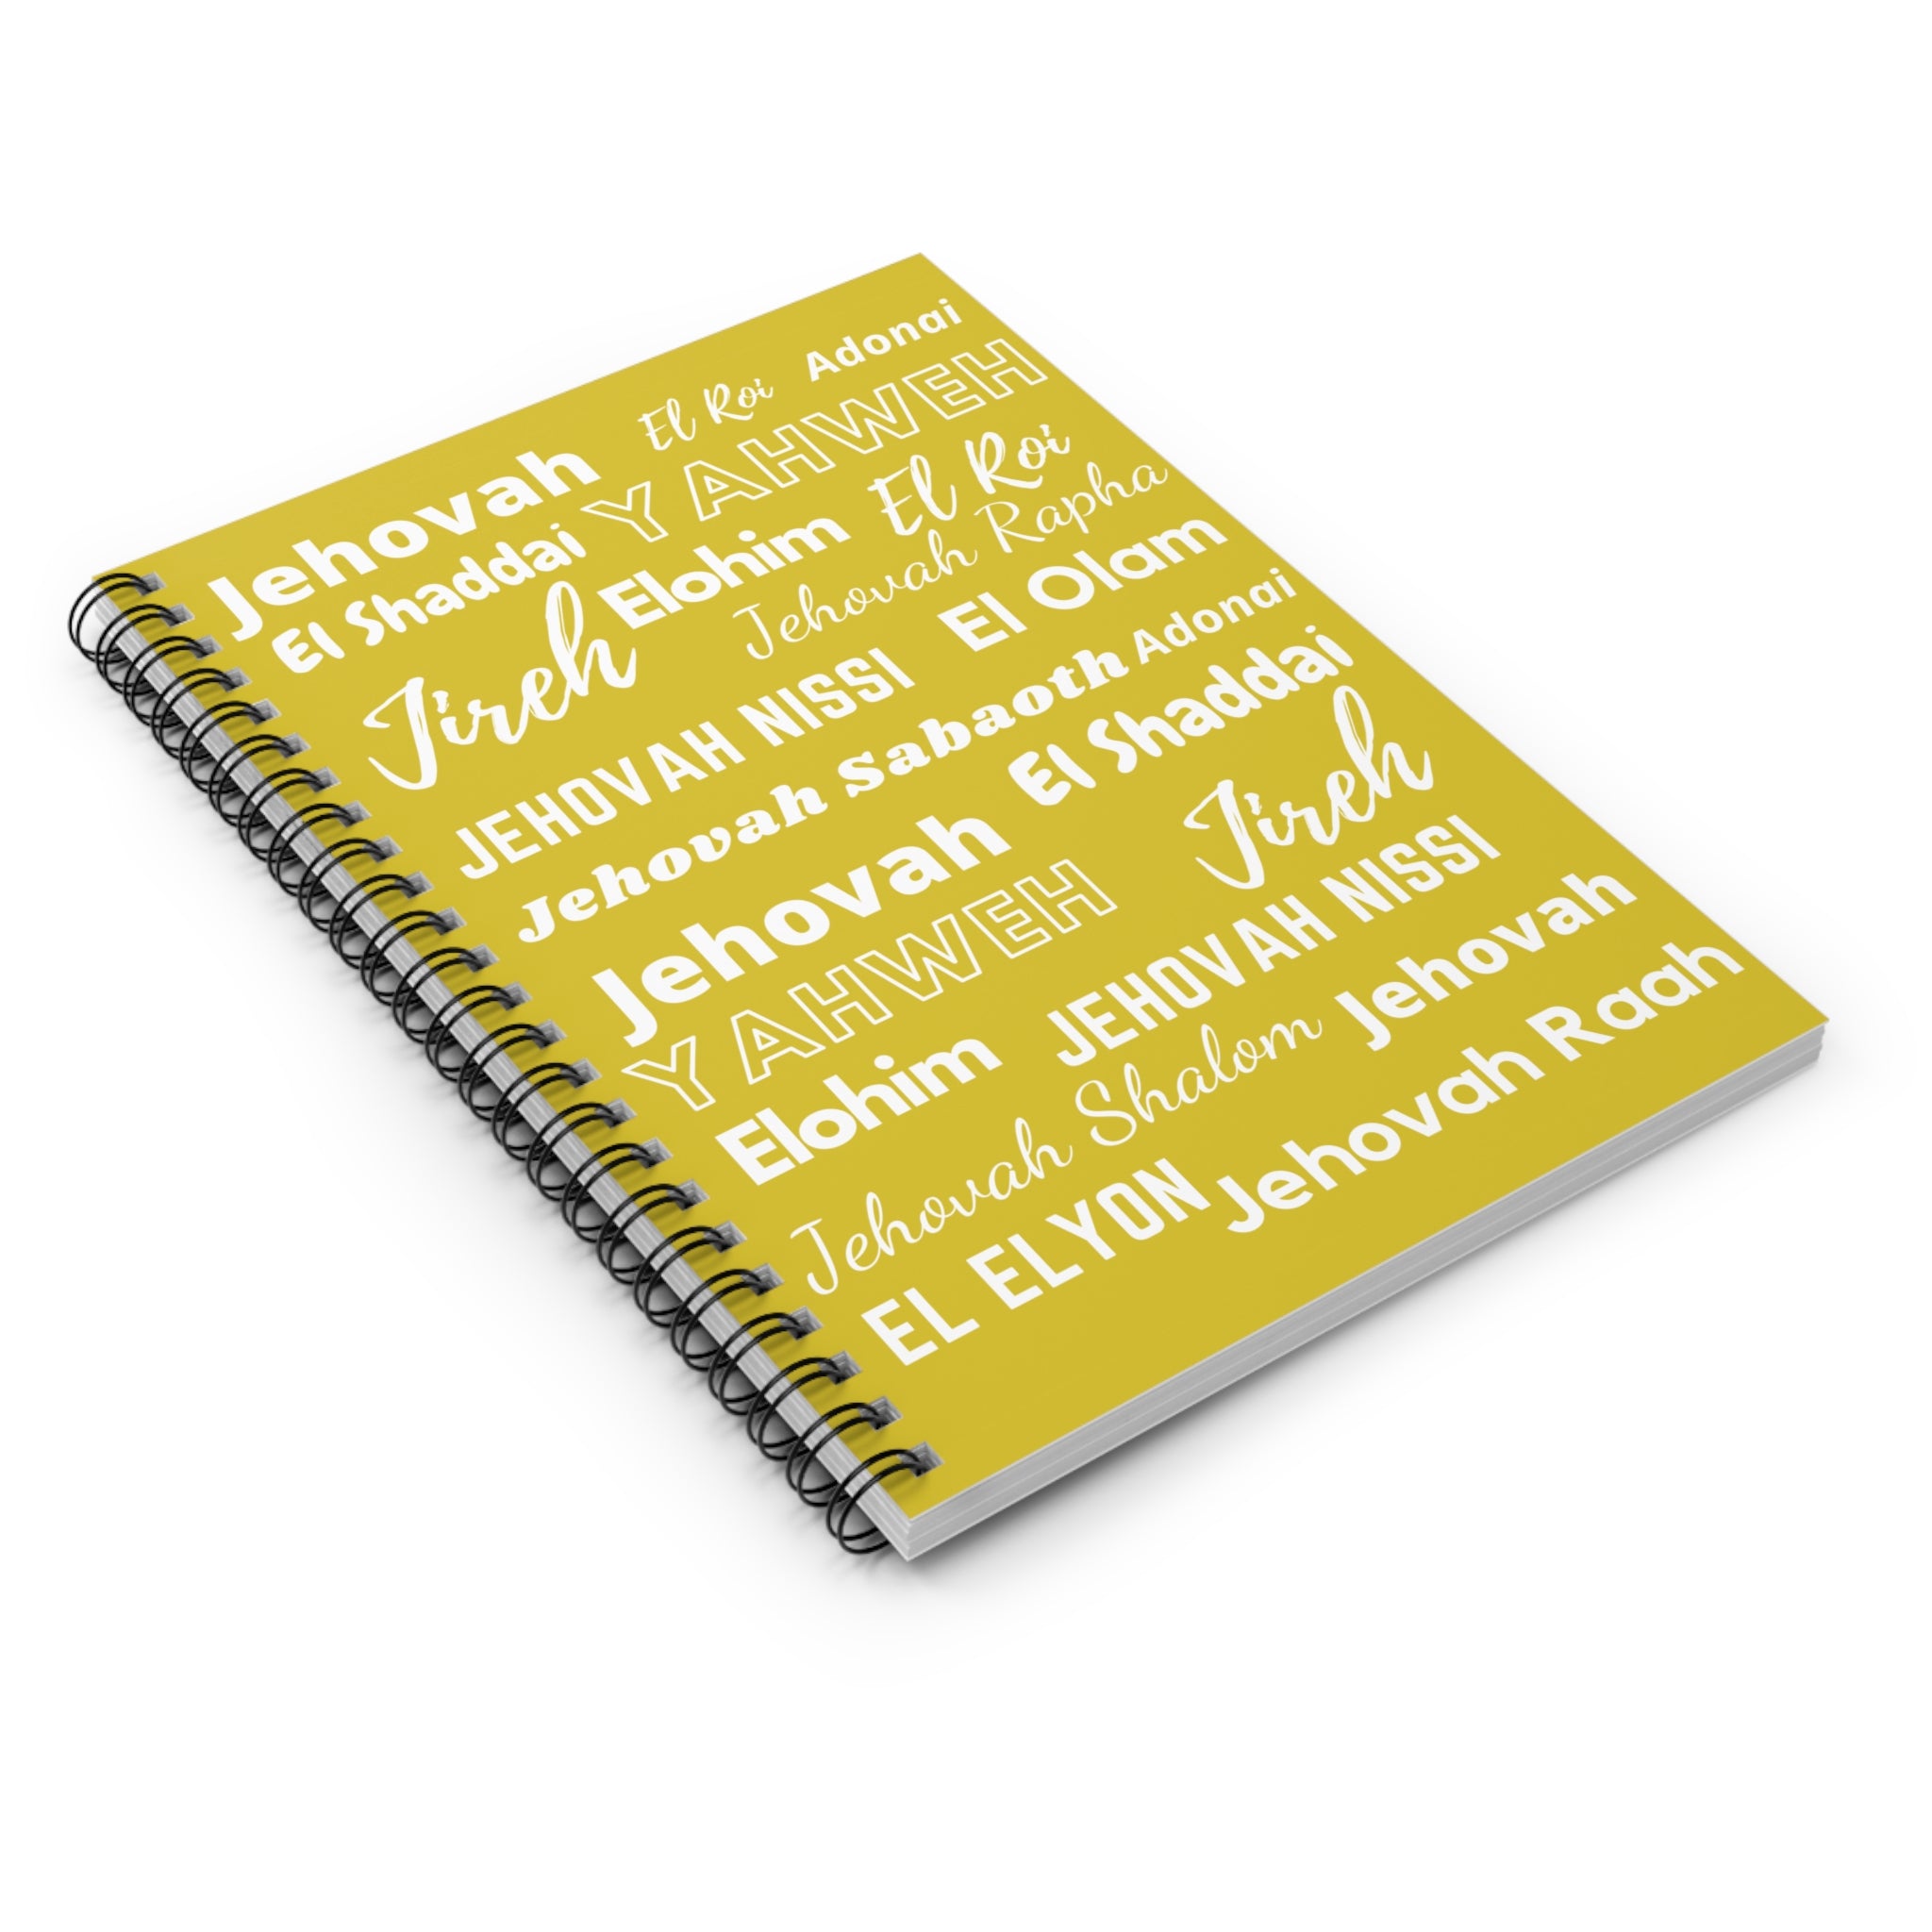 El Roi Adonai
Jehovah YAHWEH
El Shaddai Elohim El Roi
Jireh Jehovah Rapha
JEHOVAH NISSI El Olam
Jehovah Sabaoth Adonai
Jehovah El Shaddai
YAHWEH Jireh
Elohim JEHOVAH NISSI
Jehovah Shalom Jehovah
EL ELYON Jehovah Raah